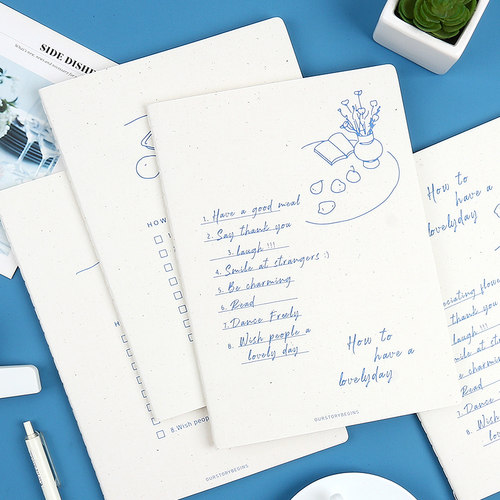 SIDE DISHE
HOW
1. Have a good meal
2. Say thank you
3. laugh !!!
4. Smile at strangers :)
5. Be charming
6. Read
7. Dance Freely
8. Wish people a
lovely day
How to
have a
lovelyday
OURSTORYBEGINS
H
8. Wish peop
OURSTORYBEGINS
How to
have a
lovelyday
eciating flowe
thank you
laugh !!!
mile at stra
e charming
Read
7. Dance
8. Wish
lo